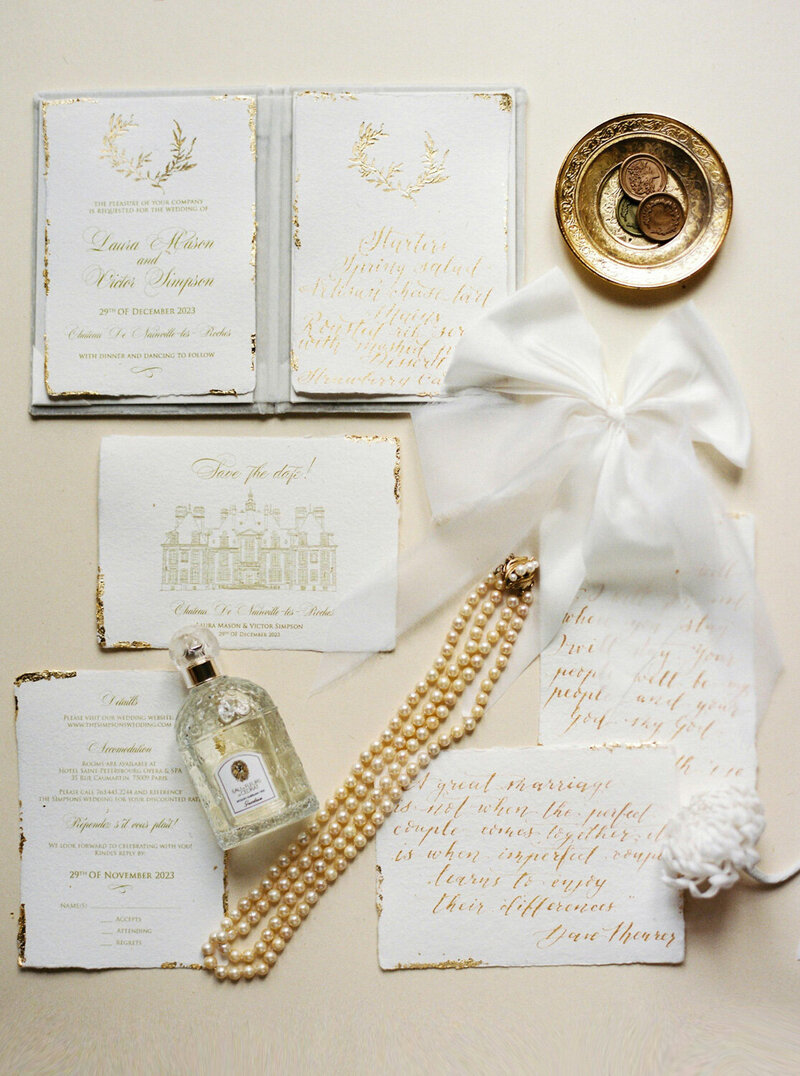 THE PLEASURE OF YOUR COMPANY
IS REQUESTED FOR THE WEDDING OF
Laura Mason
and
Victor Simpson
29TH OF DECEMBER 2023
Chateau De Nainville-les-Roches
WITH DINNER AND DANCING TO FOLLOW
Starters
Spring Salad
Mains
with
Desserts
Strawberry
Save the date!
Chateau De Nainville-les-Roches
LAURA MASON & VICTOR SIMPSON
29TH OF DECEMBER 2023
Details
PLEASE VISIT OUR WEDDING WEBSITE:
WWW.THESIMPSONSWEDDING.COM
Accomodation
ROOMS ARE AVAILABLE AT
HOTEL SAINT-PETERSBOURG OPERA & SPA
35 RUE CAUMARTIN 75009 PARIS.
PLEASE CALL 763.445.3244 AND REFERENCE
THE SIMPSONS WEDDING FOR YOUR DISCOUNTED
Répondez s'il vous plaît!
WE LOOK FORWARD TO CELEBRATING WITH YOU!
KINDLY REPLY BY:
29TH OF NOVEMBER 2023
NAME(S):
ACCEPTS
ATTENDING
REGRETS
Guerlain
will
I will
people will be my
people and your
God my God
A great marriage
is not when the perfect
couple comes together, it
is when imperfect
learns to enjoy
their differences"
Dave Meurer